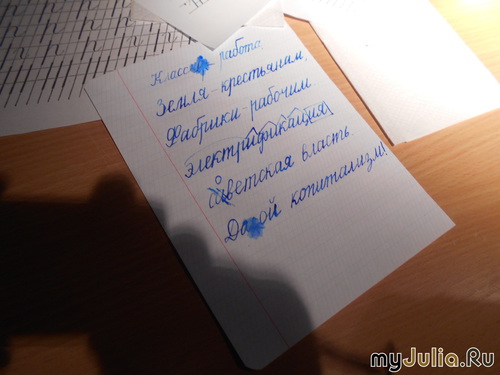 Классная работа.
Земля-крестьянам,
Фабрики-рабочим
электрификация
Советская власть.
Долой копитализм!
myJulia.Ru